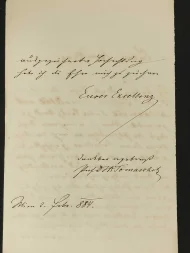 ausgezeichneter Hochachtung
habe ich die Ehre mich zu zeichnen
Eurer Excellenz
dankbar ergebenst
Prof. Dr. K. Tomaschek
Wien 2. Febr. 1881.